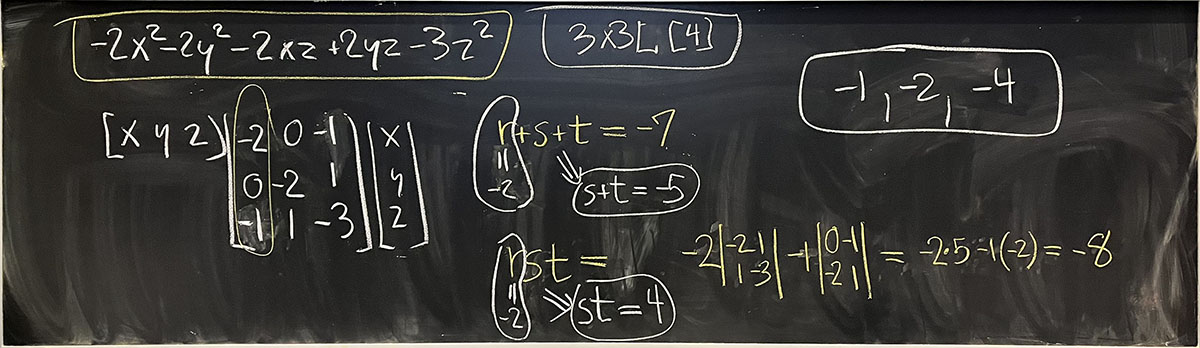 -2x²-2y²-2xz+2yz-3z²
3x3[, [4]
-1, -2, -4
[x y z] [-2 0 -1
0 -2 1
-1 1 -3] [x
y
z]
r+s+t = -7
=
-2
⇒ s+t = -5
rst = -2|-2 1
1 -3| -1|0 -1
-2 1| = -2·5-1(-2) = -8
=
-2
⇒ st = 4